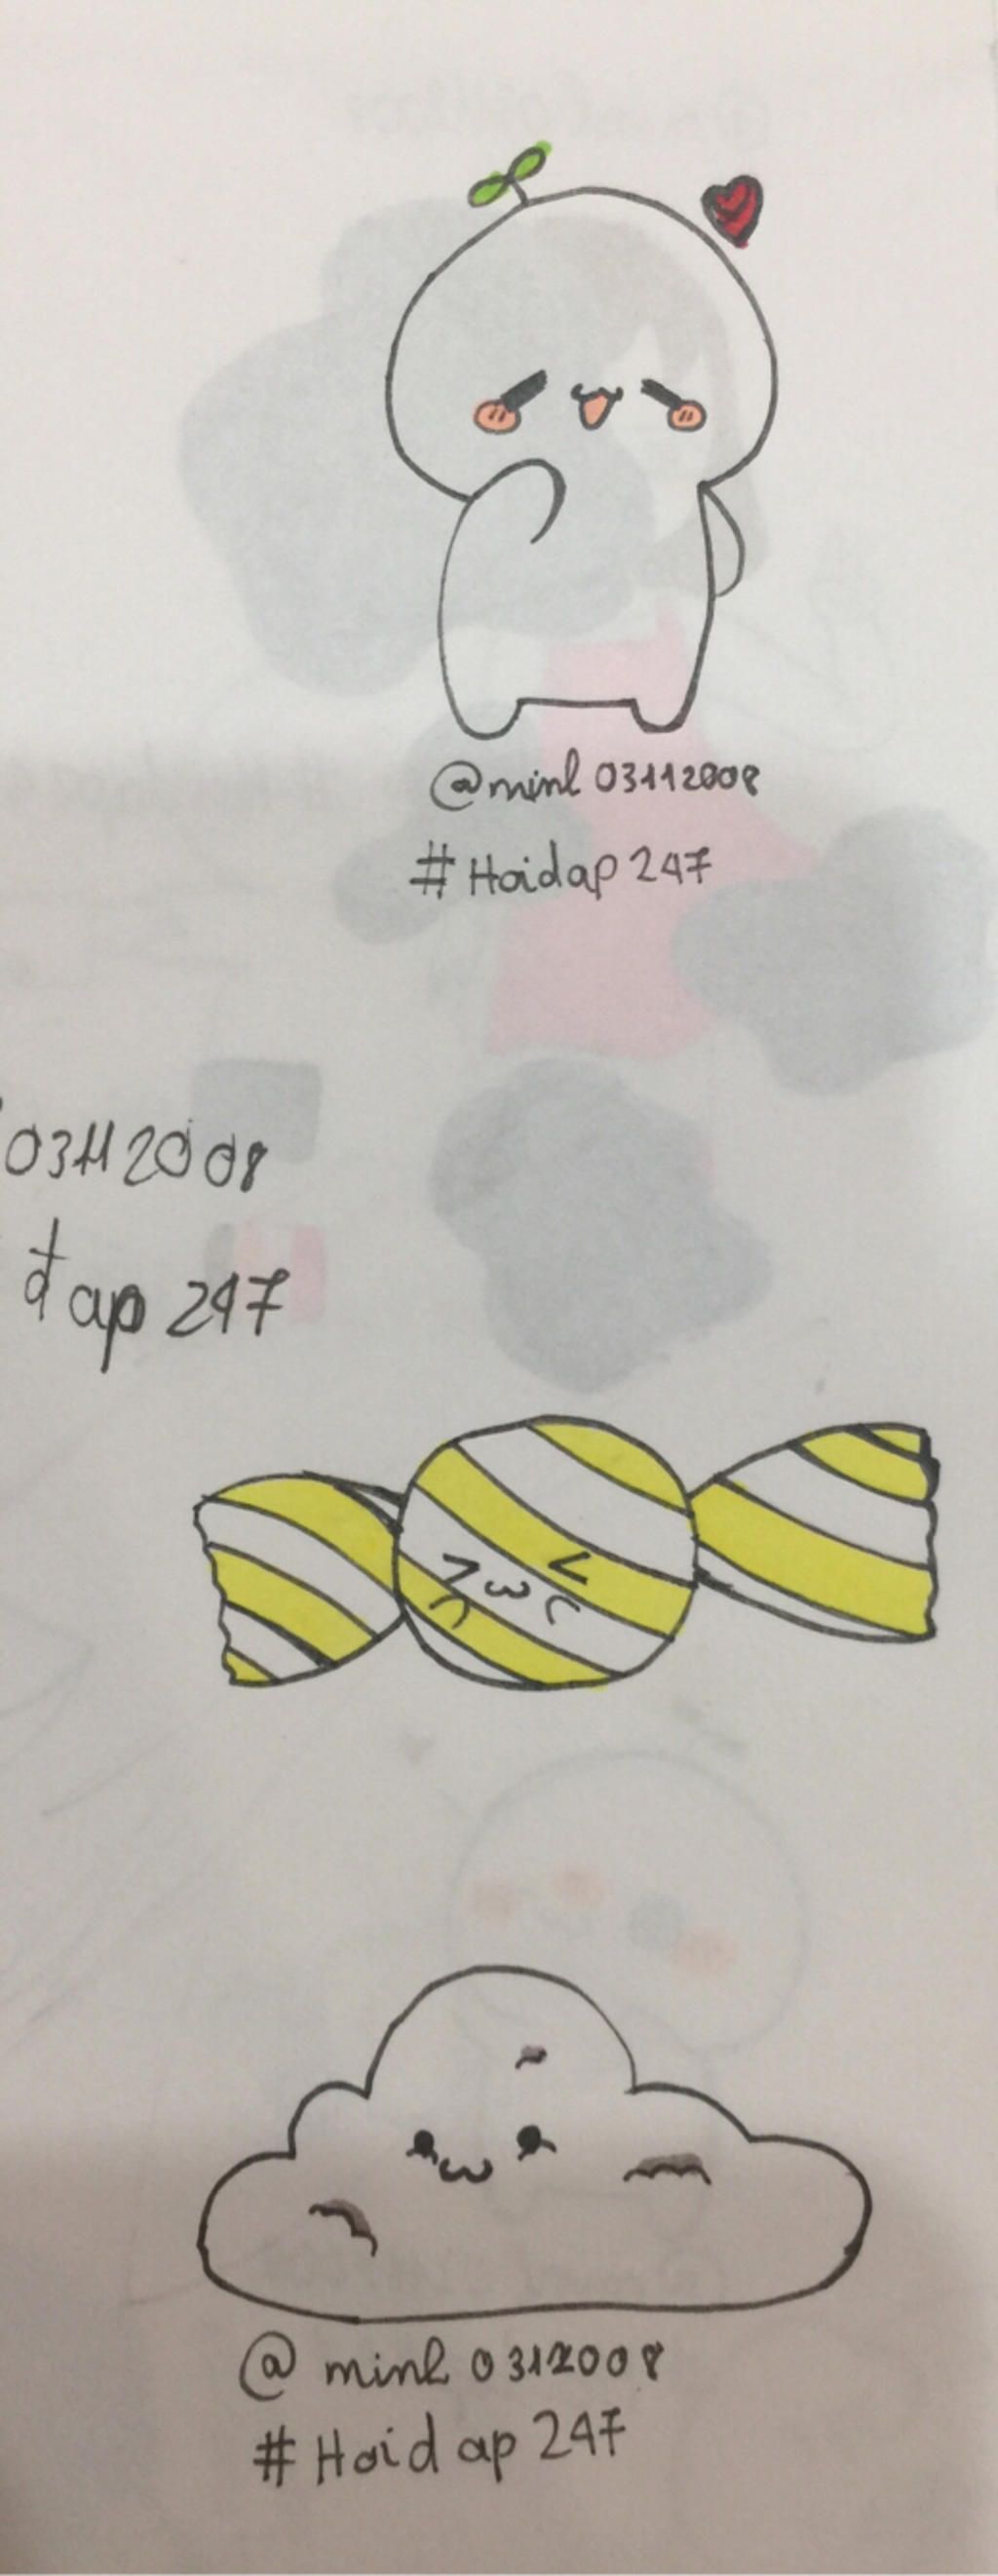 @minl 03112008
#Hoidap 247
03112008
đap 247
@ minl 0312008
#Hoid ap 247